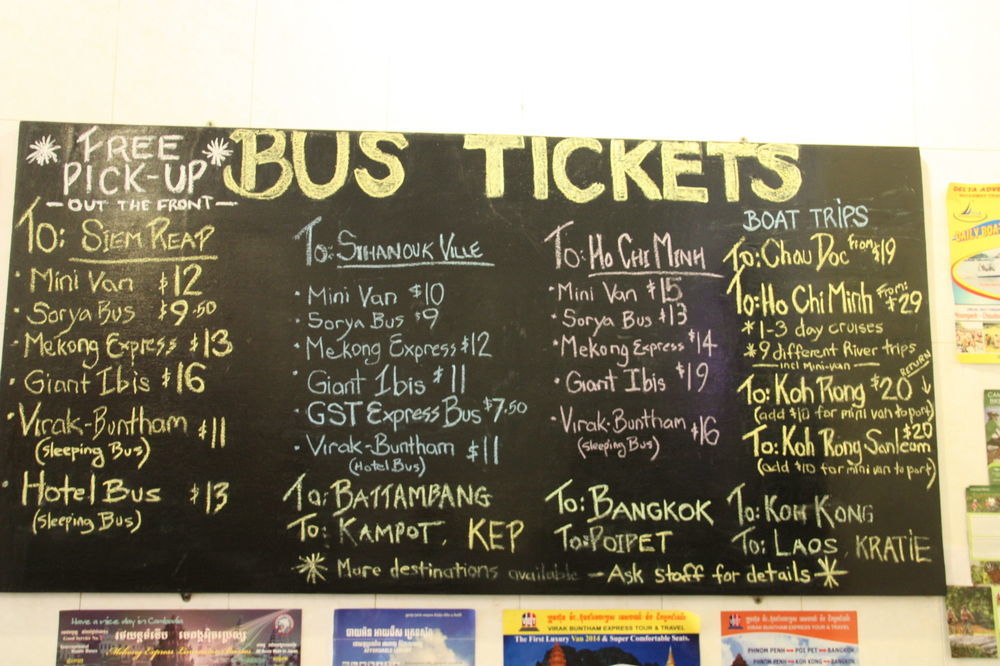 FREE
PICK-UP
- OUT THE FRONT -
BUS TICKETS
To: SIEM REAP
· Mini Van $12
· Sorya Bus $9.50
· Mekong Express $13
· Giant Ibis $16
· Virak-Buntham $11
(Sleeping Bus)
· Hotel Bus $13
(Sleeping Bus)
To: SIHANOUK VILLE
· Mini Van $10
· Sorya Bus $9
· Mekong Express $12
· Giant Ibis $11
· GST Express Bus $7.50
· Virak-Buntham $11
(Hotel Bus)
To: BATTAMBANG
To: KAMPOT, KEP
To: HO CHI MINH
· Mini Van $15
· Sorya Bus $13
· Mekong Express $14
· Giant Ibis $19
· Virak-Buntham $16
(Sleeping Bus)
To: BANGKOK
To: POIPET
BOAT TRIPS
To: Chau Doc from $19
To: Ho Chi Minh From: $29
* 1-3 day cruises
* 9 different River trips
- incl Mini-van -
RETURN
To: Koh Rong $20
(add $10 for mini van to port)
To: Koh Rong Sanleam $20
(add $10 for mini van to port)
To: KOH KONG
To: LAOS, KRATIE
* More destinations available - Ask staff for details *
DELTA ADVE
DAILY BOA
Have a nice day in Cambodia
Mekong Express Limousine Bus
VIRAK BUNTHAM EXPRESS TOUR & TRAVEL
The First Luxury Van 2014 & Super Comfortable Seats.
VIRAK BUNTHAM EXPRESS TOUR & TRAVEL
PHNOM PENH → POI PET → BANGKOK
PHNOM PENH → KOH KONG → BANGKOK